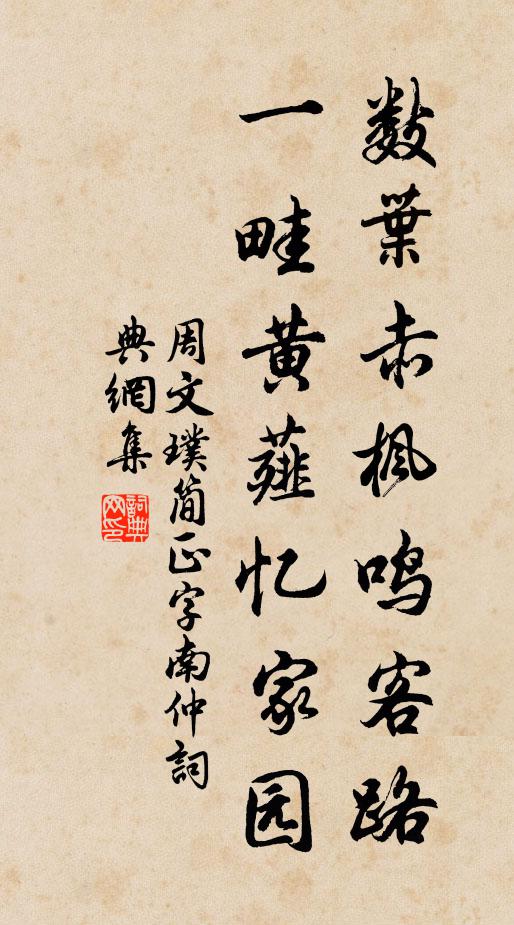 数葉赤楓鳴客路
一畦黄薤忆家园
周文璞简正字南仲詞
典網集
詞典网印